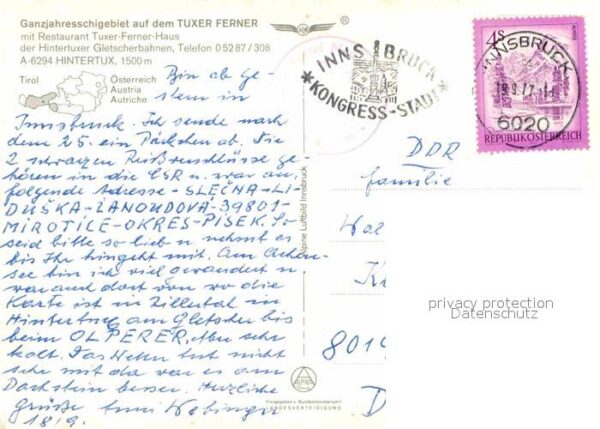 Ganzjahresschigebiet auf dem TUXER FERNER
mit Restaurant Tuxer-Ferner-Haus
der Hintertuxer Gletscherbahnen, Telefon 0 52 87 / 308
A-6294 HINTERTUX, 1500 m
Tirol
Österreich
Austria
Autriche
Bin ab ge-
stern in
Innsbruck. Ich sende nach
dem 25. ein Päckchen ab. Die
2 schwarzen Reißverschlüsse ge-
hören in die ČSR u. zwar an
folgende Adresse - SLEČNA - LI-
DUŠKA - ZANOUDOVA - 39801 -
MIROTICE - OKRES - PISEK. So
seid bitte so lieb u. nehmt es
bis Ihr hingeht mit. Am Achen-
see bin ich viel gewandert u.
war auch dort von wo die
Karte ist in Zillertal in
Hintertux am Gletscher bis
beim OLPERER, Aber sehr
kalt. Das Wehn tut nicht
sehr mit da war es am
Dachstein besser. Herzliche
Grüße
18/9.
Alpine Luftbild Innsbruck
INNSBRUCK
*KONGRESS-STADT*
INNSBRUCK
6020
4s
REPUBLIK ÖSTERREICH
DDR
Familie
8019
D
privacy protection
Datenschutz
Freigegeben v. Bundesministerium f.
LANDESVERTEIDIGUNG